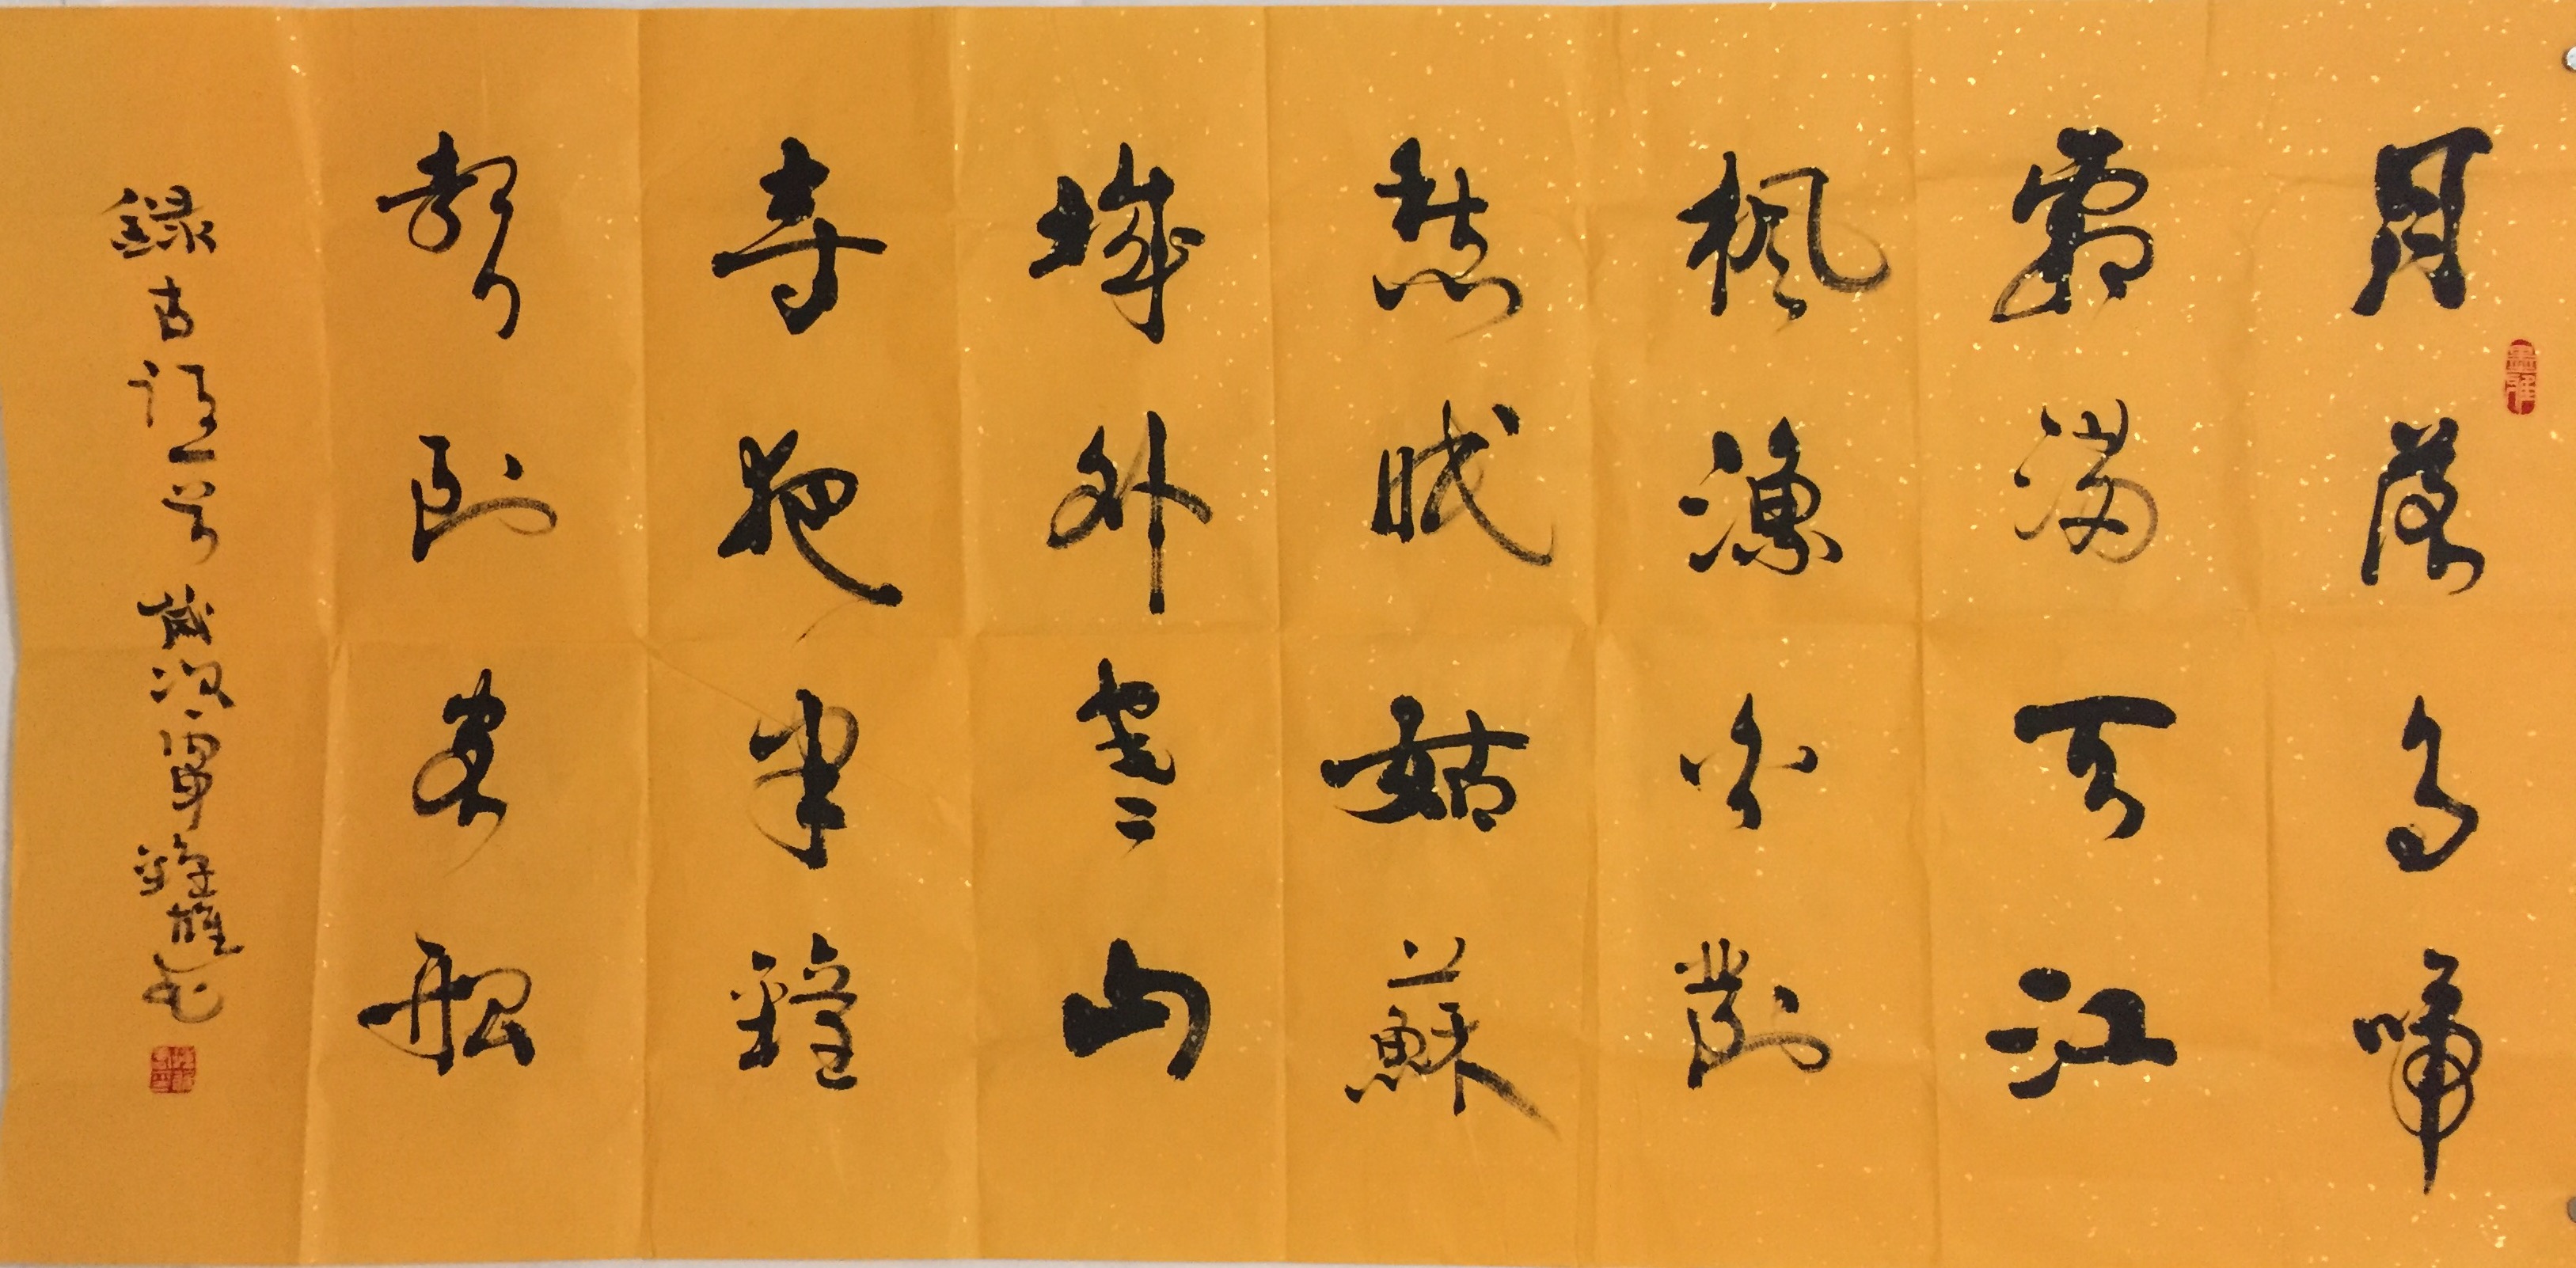 月落烏啼
霜滿天江
楓漁火對
愁眠姑蘇
城外寒山
寺夜半鐘
聲到客船
錄古詩一首 歲次 雄